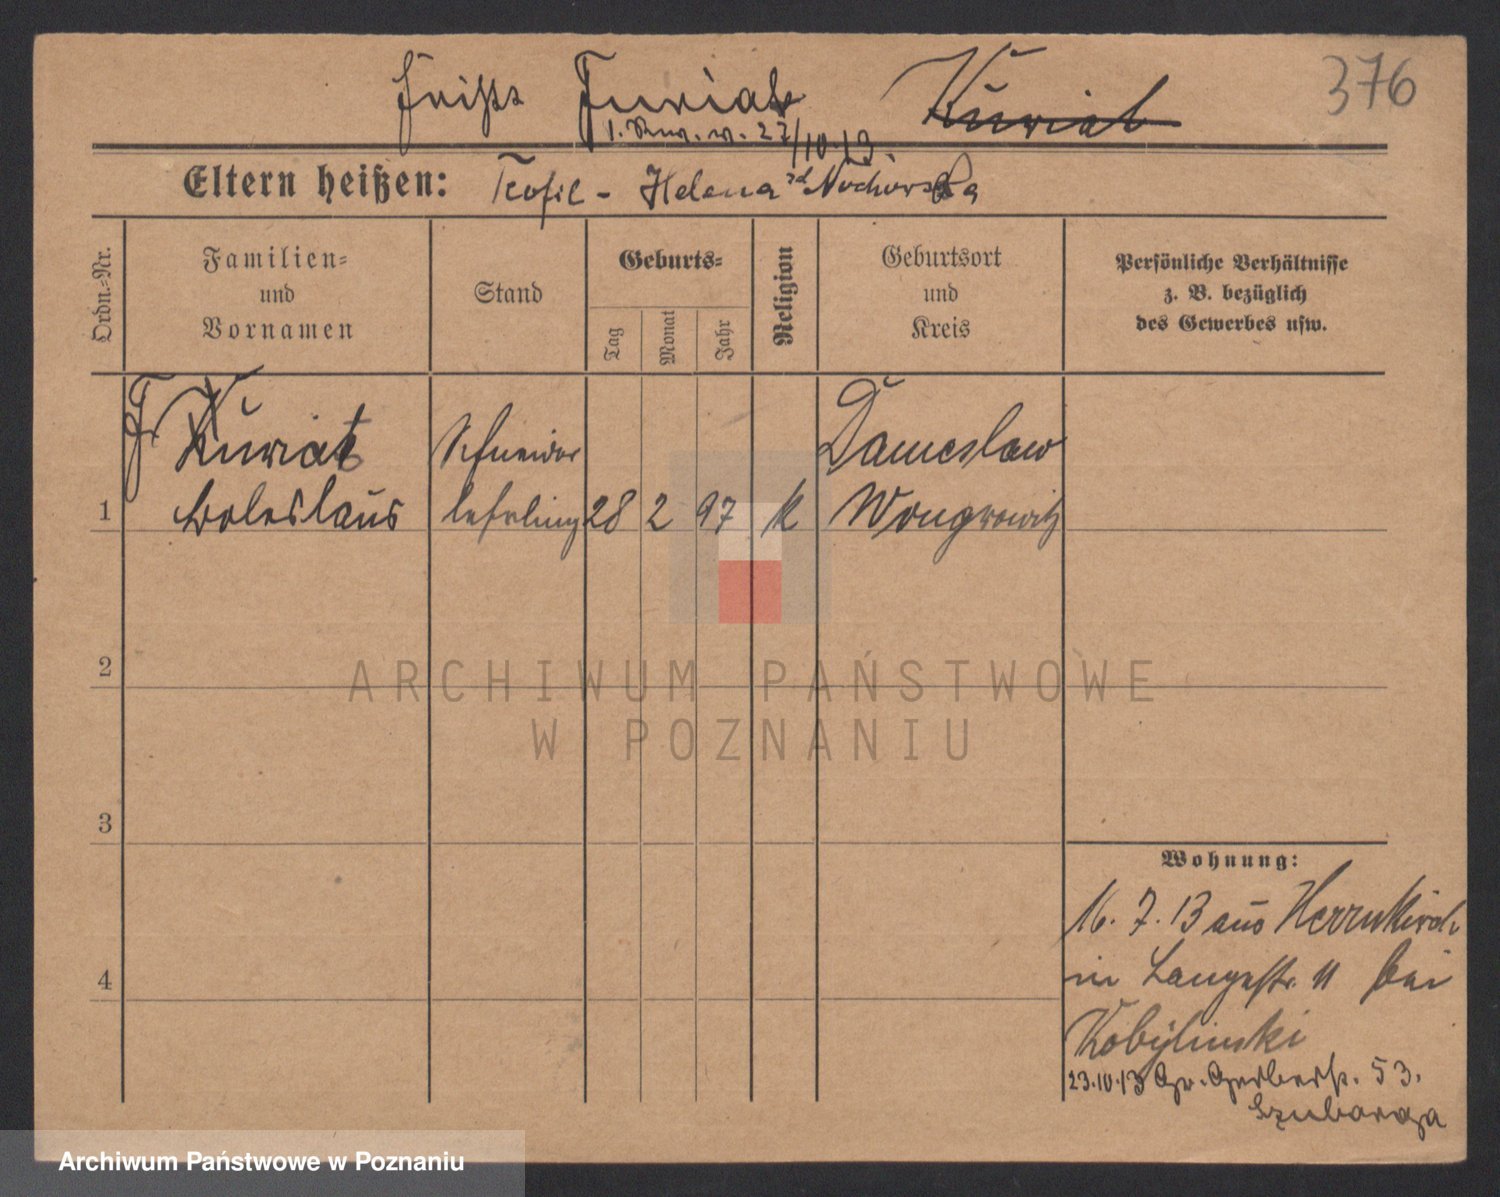 heißt Furiat Kuriat 376
27/10.13.
Eltern heißen: Teofil - Helena Nochorska
Ordn.-Nr.
Familien-
und
Vornamen
Stand
Geburts-
Tag
Monat
Jahr
Religion
Geburtsort
und
Kreis
Persönliche Verhältnisse
z. B. bezüglich
des Gewerbes usw.
F Kuriat Schneider Dameslaw
1 Boleslaus lehrling 28 2 97 k Wongrowitz
2
ARCHIWUM PAŃSTWOWE
W POZNANIU
3
Wohnung:
16. 7. 13 aus Herrnkirch
in Langestr. 11 bei
4
Kobylinski
23.10.13 Gr. Gerberstr. 53.
Szubarga
Archiwum Państwowe w Poznaniu